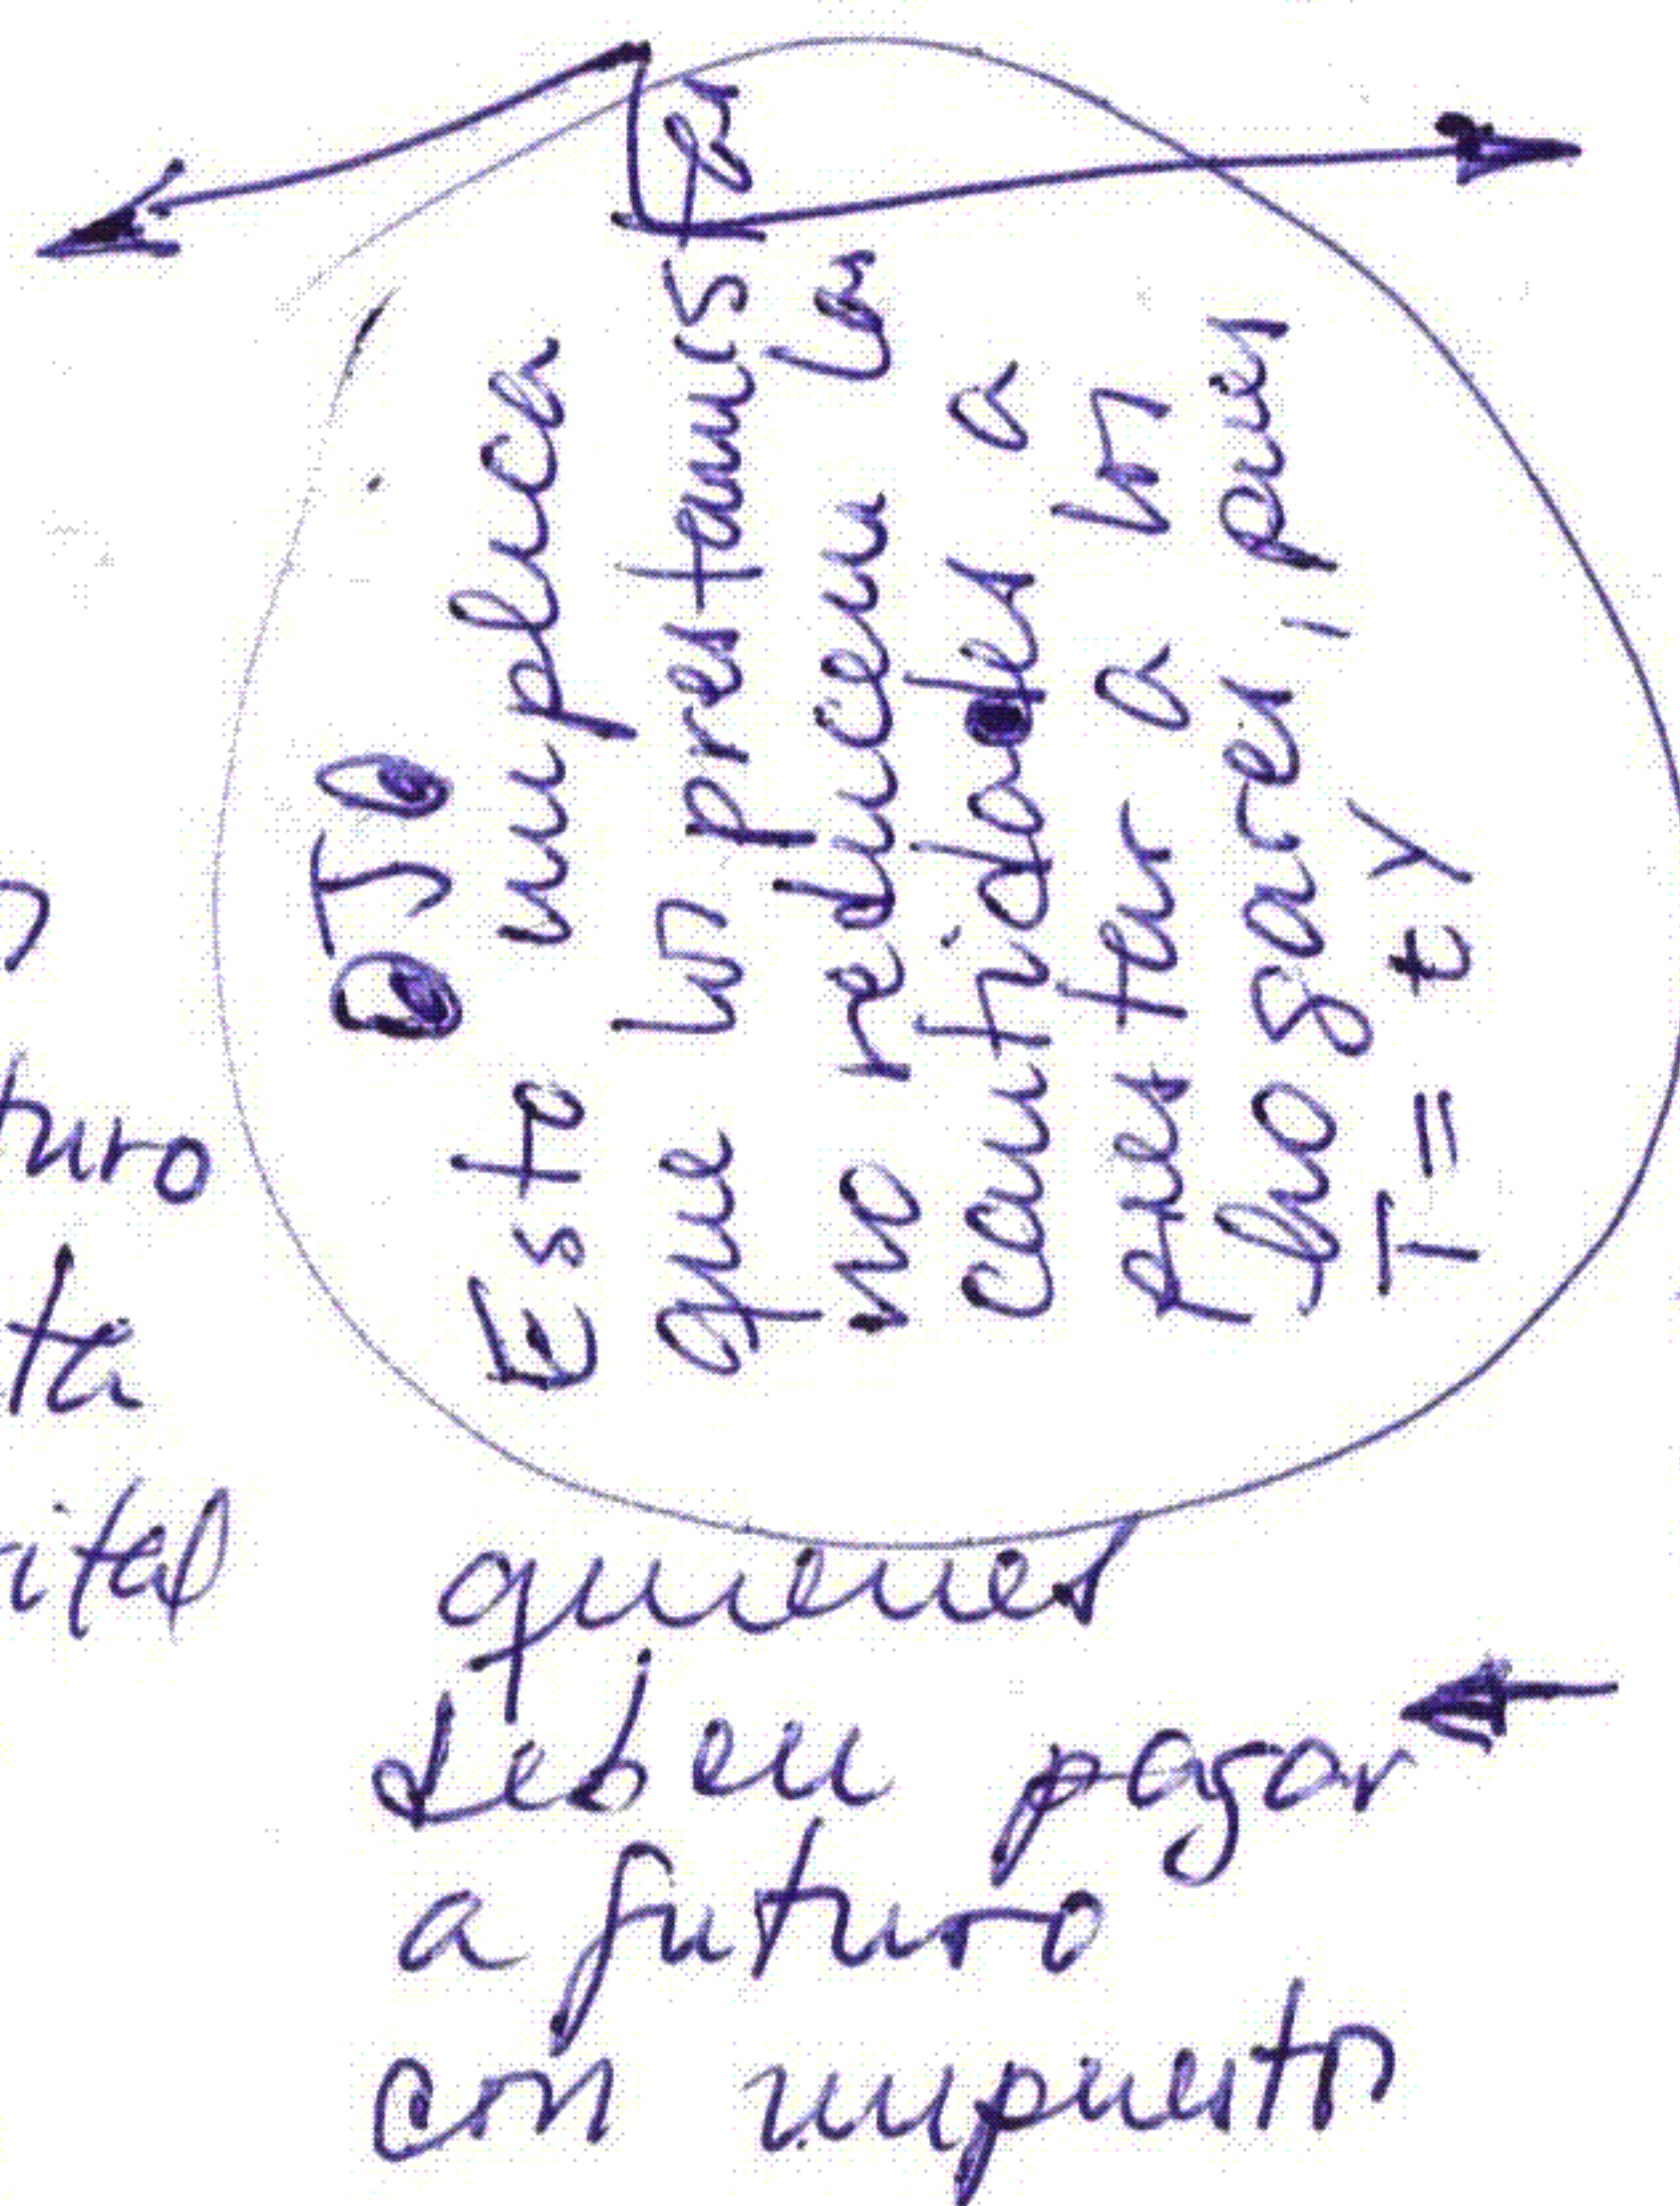 OJO
Esto implica
que los prestamistas
no reducen las
cantidades a
prestar a los
hogares, pues
T = tY
turo
ta
ital
quienes
deben pagar
a futuro
con impuestos